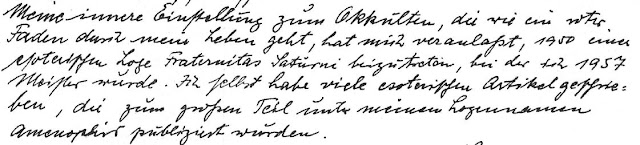 Meine innere Einstellung zum Okkulten, die wie ein roter
Faden durch mein Leben geht, hat mich veranlaßt, 1950 einer
esoterischen Loge Fraternitas Saturni beizutreten, bei der ich 1957
Meister wurde. Ich selbst habe viele esoterischen Artikel geschrie-
ben, die zum großen Teil unter meinem Logennamen
Amenophis publiziert wurden.